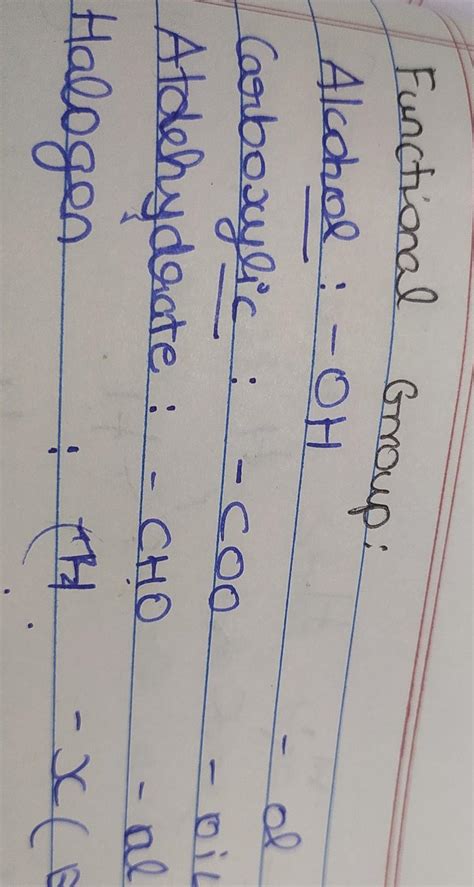 Functional Group:
Alcohol : -OH - ol
Carboxylic : -COO - oic
Aldehydrate : -CHO - al
Halogen : - X (B